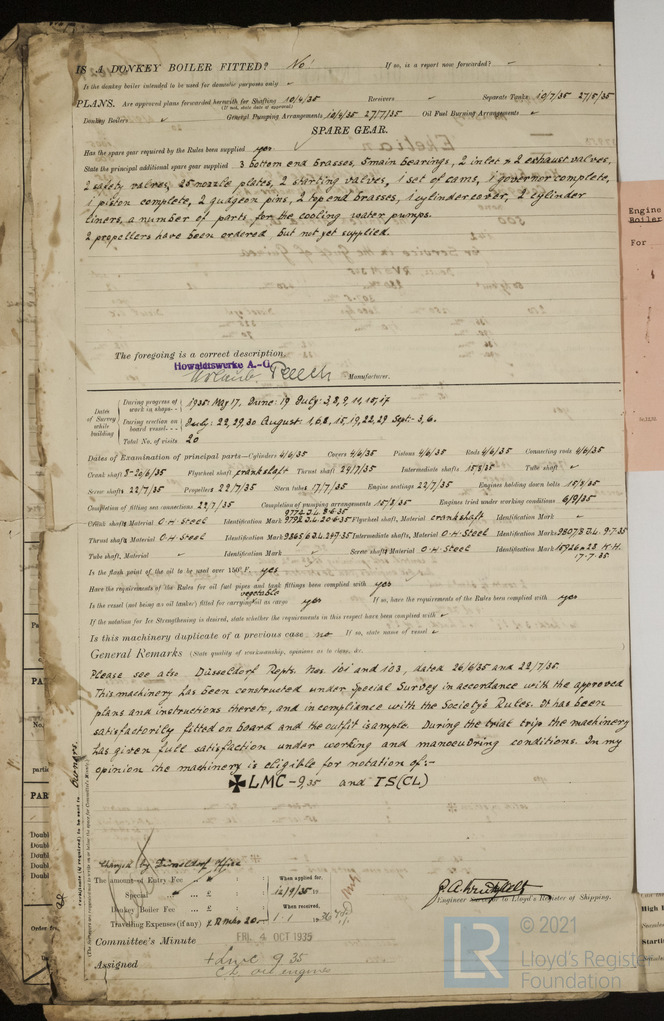 IS A DONKEY BOILER FITTED? No! If so, is a report now forwarded?
Is the donkey boiler intended to be used for domestic purposes only
PLANS. Are approved plans forwarded herewith for Shafting 10/4/35 Receivers Separate Tanks 10/7/35 27/5/35
(If not, state date of approval)
Donkey Boilers General Pumping Arrangements 12/4/35 27/7/35 Oil Fuel Burning Arrangements
SPARE GEAR.
Has the spare gear required by the Rules been supplied yes
State the principal additional spare gear supplied 3 bottom end brasses, 5 main bearings, 2 inlet & 2 exhaust valves,
2 safety valves, 25 nozzle plates, 2 starting valves, 1 set of cams, 1 governor complete,
1 piston complete, 2 gudgeon pins, 2 top end brasses, 1 cylinder cover, 2 cylinder
liners, a number of parts for the cooling water pumps.
2 propellers have been ordered but not yet supplied.
The foregoing is a correct description,
Howaldtswerke A.-G.
Manufacturer.
Dates of Survey while building
During progress of work in shops - - 1935: May 17, June: 19 July: 3, 8, 9, 11, 15, 17
During erection on board vessel - - - July: 22, 29, 30 August: 1, 6, 8, 15, 19, 22, 29 Sept: 3, 6.
Total No. of visits 20
Dates of Examination of principal parts—Cylinders 4/6/35 Covers 4/6/35 Pistons 4/6/35 Rods 4/6/35 Connecting rods 4/6/35
Crank shaft 5-20/6/35 Flywheel shaft crankshaft Thrust shaft 29/7/35 Intermediate shafts 15/8/35 Tube shaft
Screw shaft 22/7/35 Propeller 22/7/35 Stern tube 17/7/35 Engine seatings 22/7/35 Engines holding down bolts 15/8/35
Completion of fitting sea connections 22/7/35 Completion of pumping arrangements 15/8/35 Engines tried under working conditions 6/9/35
Crank shaft, Material O-H-Steel Identification Mark Flywheel shaft, Material crankshaft Identification Mark
Thrust shaft, Material O-H-Steel Identification Mark Intermediate shafts, Material O-H-Steel Identification Marks 9-7-35
Tube shaft, Material Identification Mark Screw shaft, Material O-H-Steel Identification Mark
17-7-35
Is the flash point of the oil to be used over 150° F. yes
Have the requirements of the Rules for oil fuel pipes and tank fittings been complied with yes
vegetable
Is the vessel (not being an oil tanker) fitted for carrying oil as cargo yes If so, have the requirements of the Rules been complied with yes
If the notation for Ice Strengthening is desired, state whether the requirements in this respect have been complied with
Is this machinery duplicate of a previous case no If so, state name of vessel
General Remarks (State quality of workmanship, opinions as to class, &c.
Please see also Düsseldorf Repts. Nos. 101 and 103, dated 26/6/35 and 22/7/35.
This machinery has been constructed under Special Survey in accordance with the approved
plans and instructions thereto, and in compliance with the Society's Rules. It has been
satisfactorily fitted on board and the outfit is ample. During the trial trip the machinery
has given full satisfaction under working and manoeuvring conditions. In my
opinion the machinery is eligible for notation of:-
✠LMC-9,35 and TS(CL)
Charged by Düsseldorf Office
The amount of Entry Fee
Special
Donkey Boiler Fee
Travelling Expenses (if any)
When applied for,
12/9/35
When received,
Engineer Surveyor to Lloyd's Register of Shipping.
Committee's Minute FRI. 4 OCT 1935
Assigned + Lmc 9 35
oil engines
Engine
Boiler
For
© 2021
Lloyd's Register
Foundation
LR